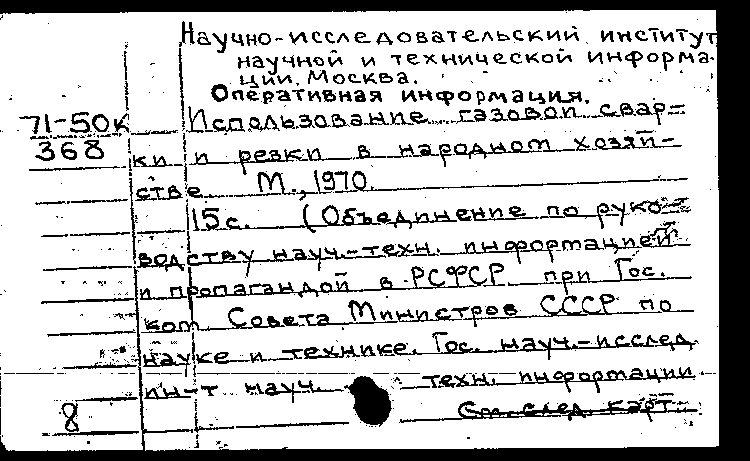 Научно-исследовательский институт
научной и технической информа-
ции. Москва.
Оперативная информация.
71-50к Использование газовой свар-
368 ки и резки в народном хозяй-
стве. М., 1970.
15с. (Объединение по руко-
водству науч.-техн. информацией
и пропагандой в РСФСР при Гос.
ком. Совета Министров СССР по
науке и технике. Гос. науч.-исслед.
ин-т науч. техн. информации
8 См. след. карт.